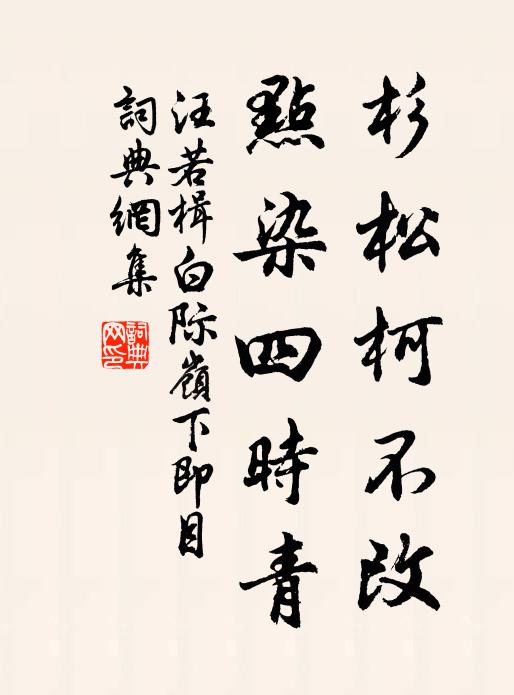 杉松柯不改
點染四時青
汪若楫白际嶺下即目
詞典網集
詞典網印